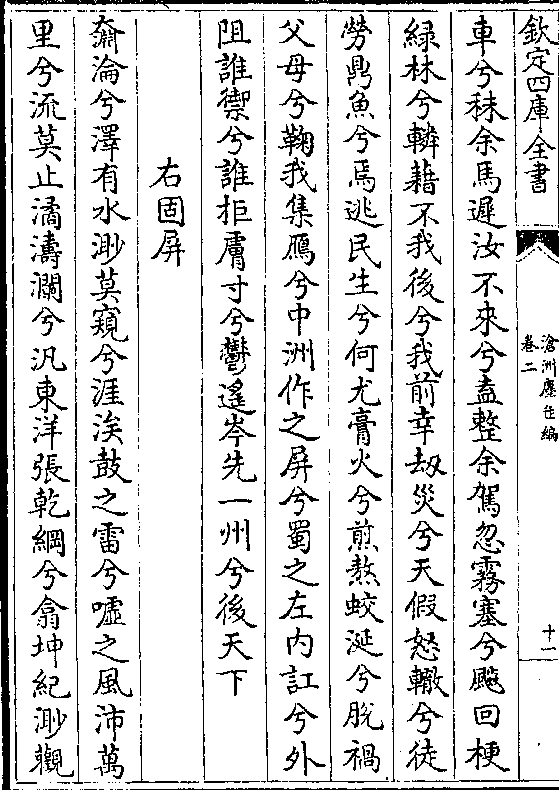 欽定四庫全書
滄洲塵缶編
卷二
十一
車兮秣余馬遲汝不來兮盍整余駕忽霧塞兮飇回梗
緑林兮轔藉不我後兮我前幸刼災兮天假怒轍兮徒
勞鼎魚兮焉逃民生兮何尤膏火兮煎熬蛟涎兮脱禍
父母兮鞠我集鴈兮中洲作之屏兮蜀之左内訌兮外
阻誰禦兮誰拒膚寸兮鬱遙岑先一州兮後天下
右固屏
奫淪兮澤有水渺莫窺兮涯涘鼓之雷兮噓之風沛萬
里兮流莫止潏濤瀾兮汎東洋張乾綱兮翕坤紀渺觀